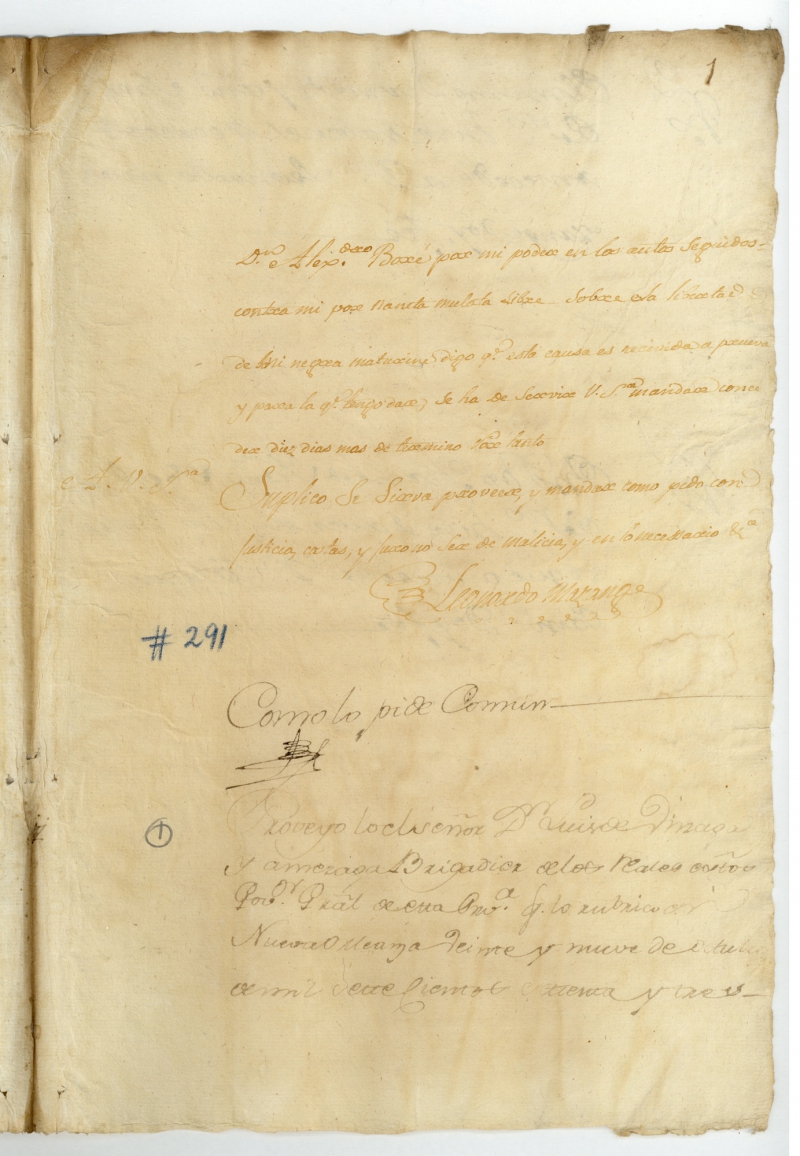 1
Dn. Alexdro Boxé por mi poder en los autos Seguidos
contra mi por Nancta mulata Libre Sobre esta libertad
de mi negra maturine digo qe. esta causa es recivida a prueva
y para la qe. tengo dada, Se ha de Servir V. Sra. mandar conce
der diez dias mas de termino Por tanto
A. V. Sra.
Suplico Se Sirva proveer, y mandar como pido con
Justicia, costas, y Juro no Ser de malicia, y en lo necesario &a.
Leonardo Mazange
# 291
Como lo pide Comun
1
Proveyo lo el señor Dn. Luis de Vnzaga
y amezaga Brigadier de los Reales extos.
Govor. Gral de esta Prova. qe. lo rubrico en
Nueva Orleans Veinte y nueve de
de mil Sete Cientos Setenta y tres